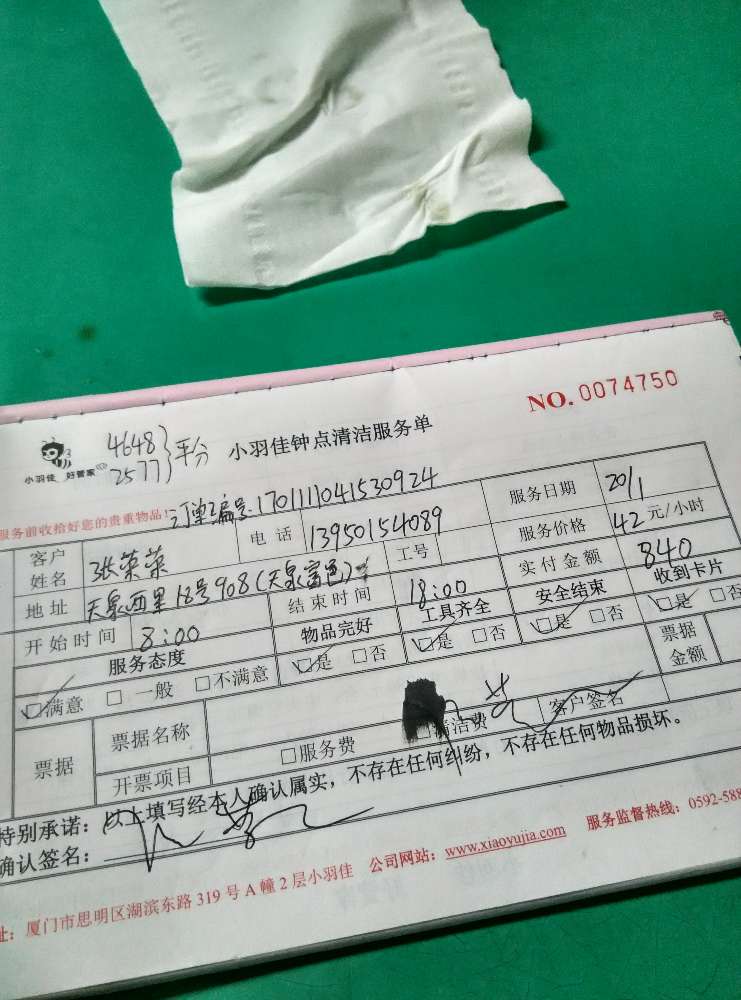 NO. 0074750
4648
2577 平分
小羽佳 好管家
小羽佳钟点清洁服务单
服务前收拾好您的贵重物品!
订单编号:170111041530924
客户姓名 张荣荣 电话 13950154089 服务日期 20/1
地址 天泉西里18号908(天泉富邑) 工号 服务价格 42 元/小时
开始时间 8:00 结束时间 18:00 实付金额 840
服务态度 物品完好 工具齐全 安全结束 收到卡片
☑满意 □一般 □不满意 ☑是 □否 ☑是 □否 ☑是 □否 ☑是 □否
票据 票据名称 票据金额
开票项目 □服务费 □清洁费 客户签名
特别承诺:以上填写经本人确认属实,不存在任何纠纷,不存在任何物品损坏。
确认签名:
址:厦门市思明区湖滨东路 319 号 A 幢 2 层小羽佳 公司网站:www.xiaoyujia.com 服务监督热线:0592-588